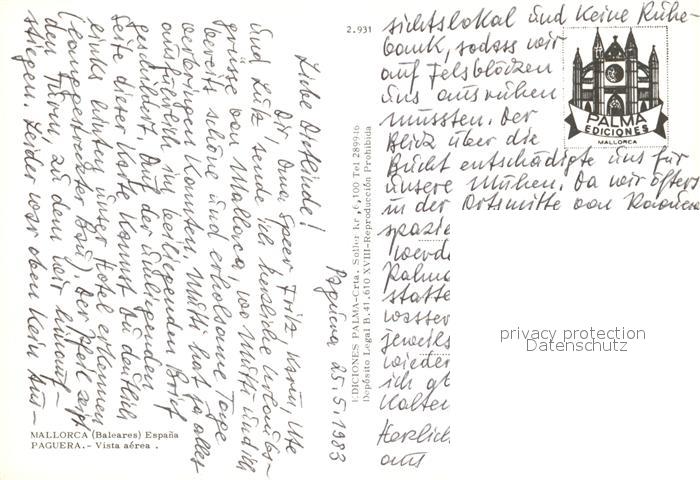 Paguera, 25.5.1983
Liebe Dietlinde!
Dir, Oma Speer, Fritz, Karin, Ute
und Lutz sende ich herzliche Urlaubs-
grüsse von Mallorca, wo Mutti und ich
bereits schöne und erholsame Tage
verbringen konnten. Mutti hat ja alles
ausführlich im beiliegenden Brief
geschildert. Auf der umliegenden
Seite dieser Karte kannst Du deutlich
links hinten unser Hotel erkennen
(langgestreckter Bau). Der Pfeil zeigt
den Turm, zu dem wir hinauf-
stiegen. Leider war oben kein Aus-
sichtslokal und keine Ruhe-
bank, sodass wir
auf Felsblöcken
uns ausruhen
mussten. Der
Blick über die
Bucht entschädigte uns für
unsere Mühen. Da wir öfters
in der Ortsmitte von Paguera
spazie
werde
Palma
statte
wasser
jeweils
wieder
ich ab
Kalten
Herzlich
aus
2.931
EDICIONES PALMA-Crta. Soller Kr, 6,100 Tel 289946
Depósito Legal B. 41.610 XVIII-Reproducción Prohibida
PALMA
EDICIONES
MALLORCA
MALLORCA (Baleares) España
PAGUERA.- Vista aérea .
privacy protection
Datenschutz